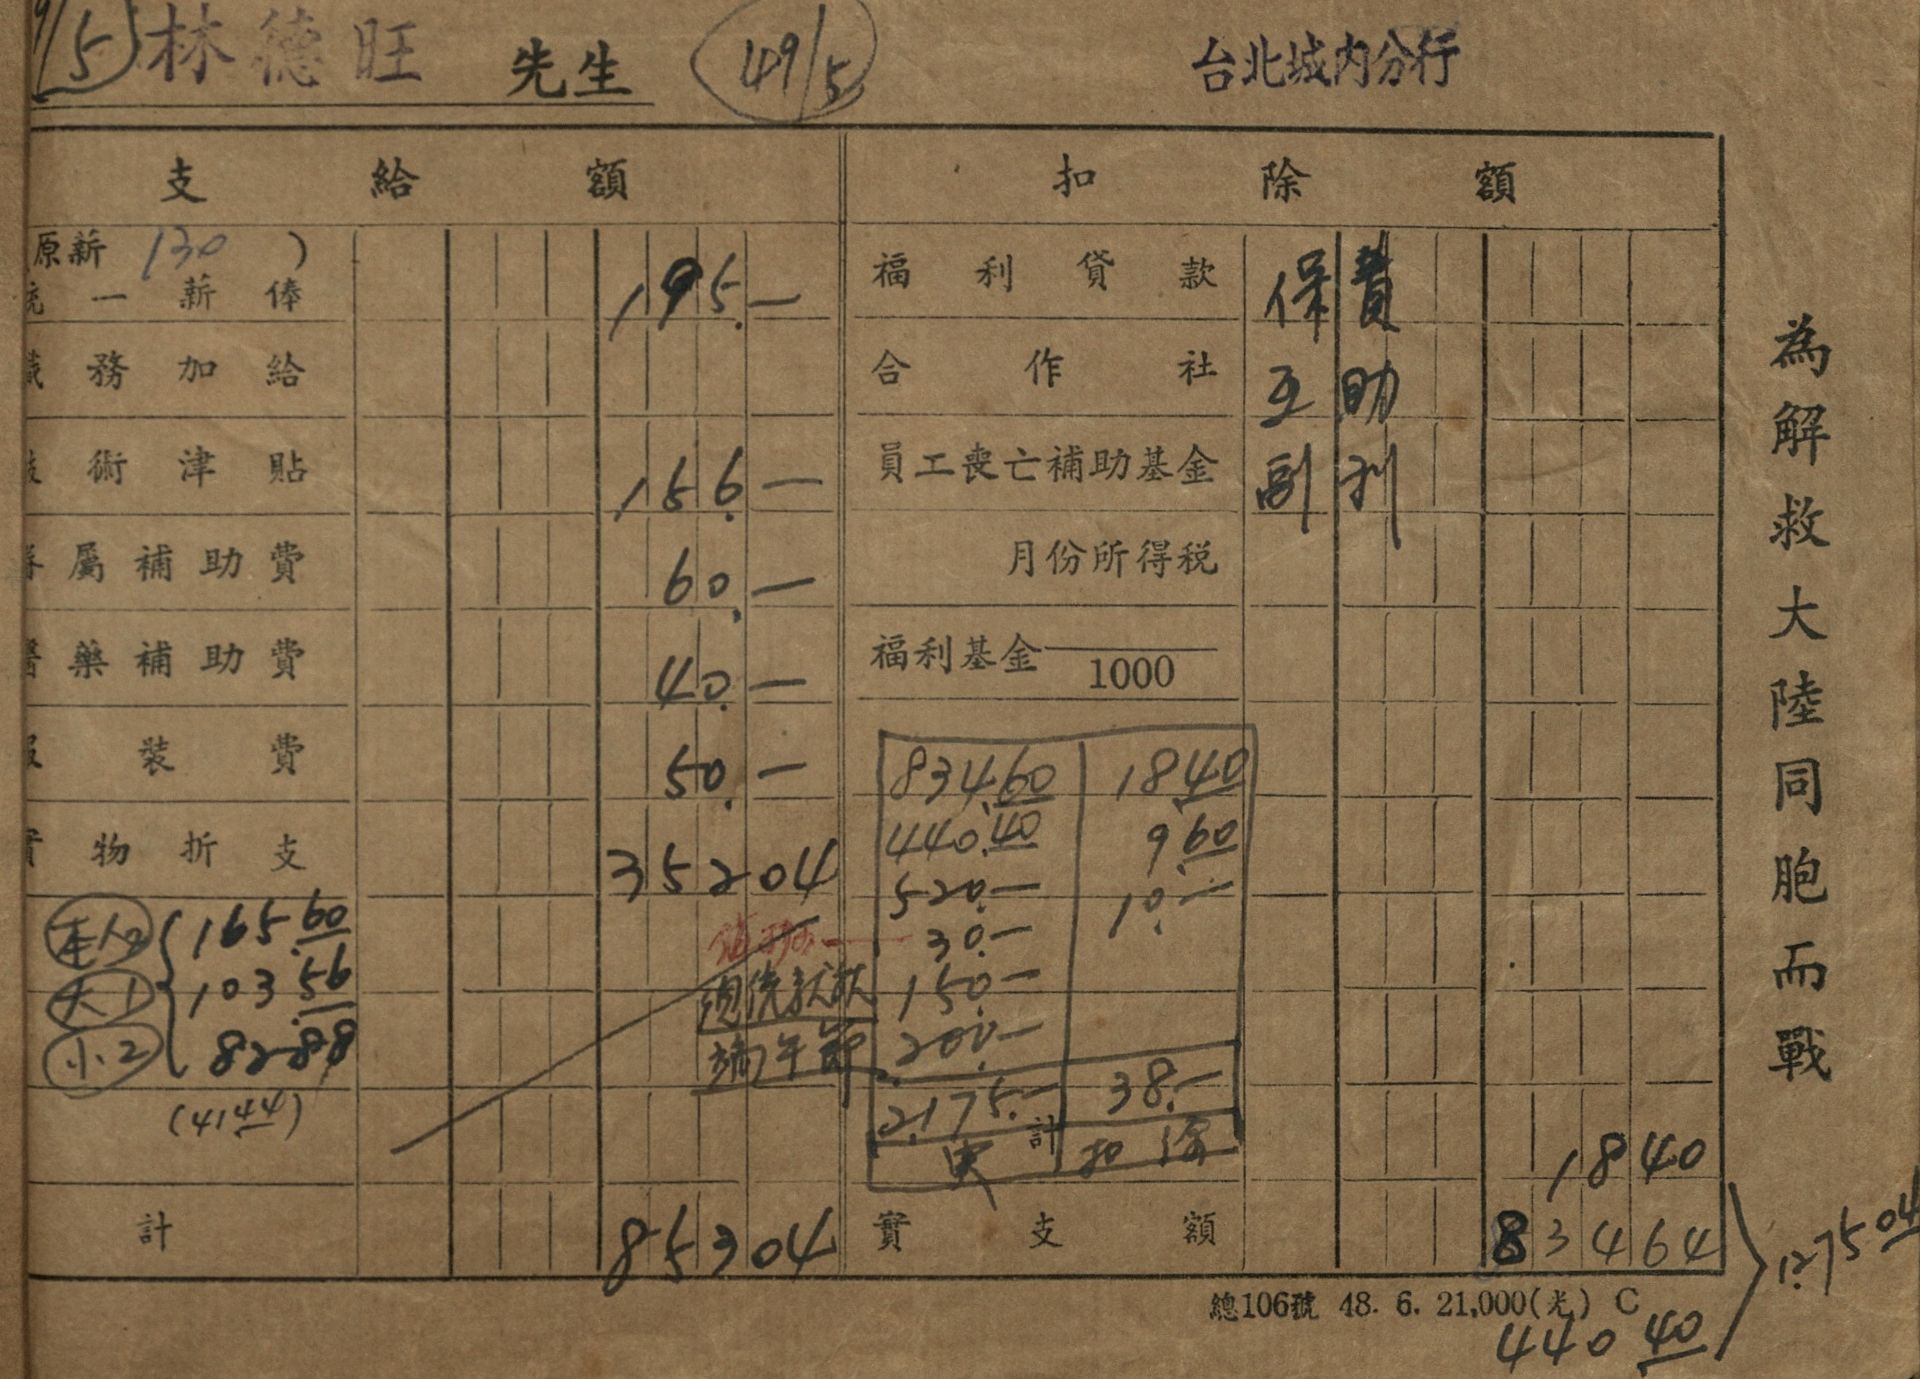 /5 林德旺 先生 49/5 台北城內分行
支給額 扣除額
原薪 130 )
一薪俸 195.— 福利貸款 保費
務加給 合作社 互助
術津貼 156.— 員工喪亡補助基金 副利
屬補助費 60.— 月份所得税
藥補助費 40.— 福利基金 1000
裝費 50.—
物折支 35204
834.60 1840
440.40 9.60
520.— 10.—
30.—
150.—
端午節 200.—
2.175.— 計 38.—
扣
本人2 165.60
大1 103.56
小2 82.88
(4144)
1840
計 85304 實支額 83464
1.275.04
總106號 48. 6. 21,000(光) C
440 40
為解救大陸同胞而戰